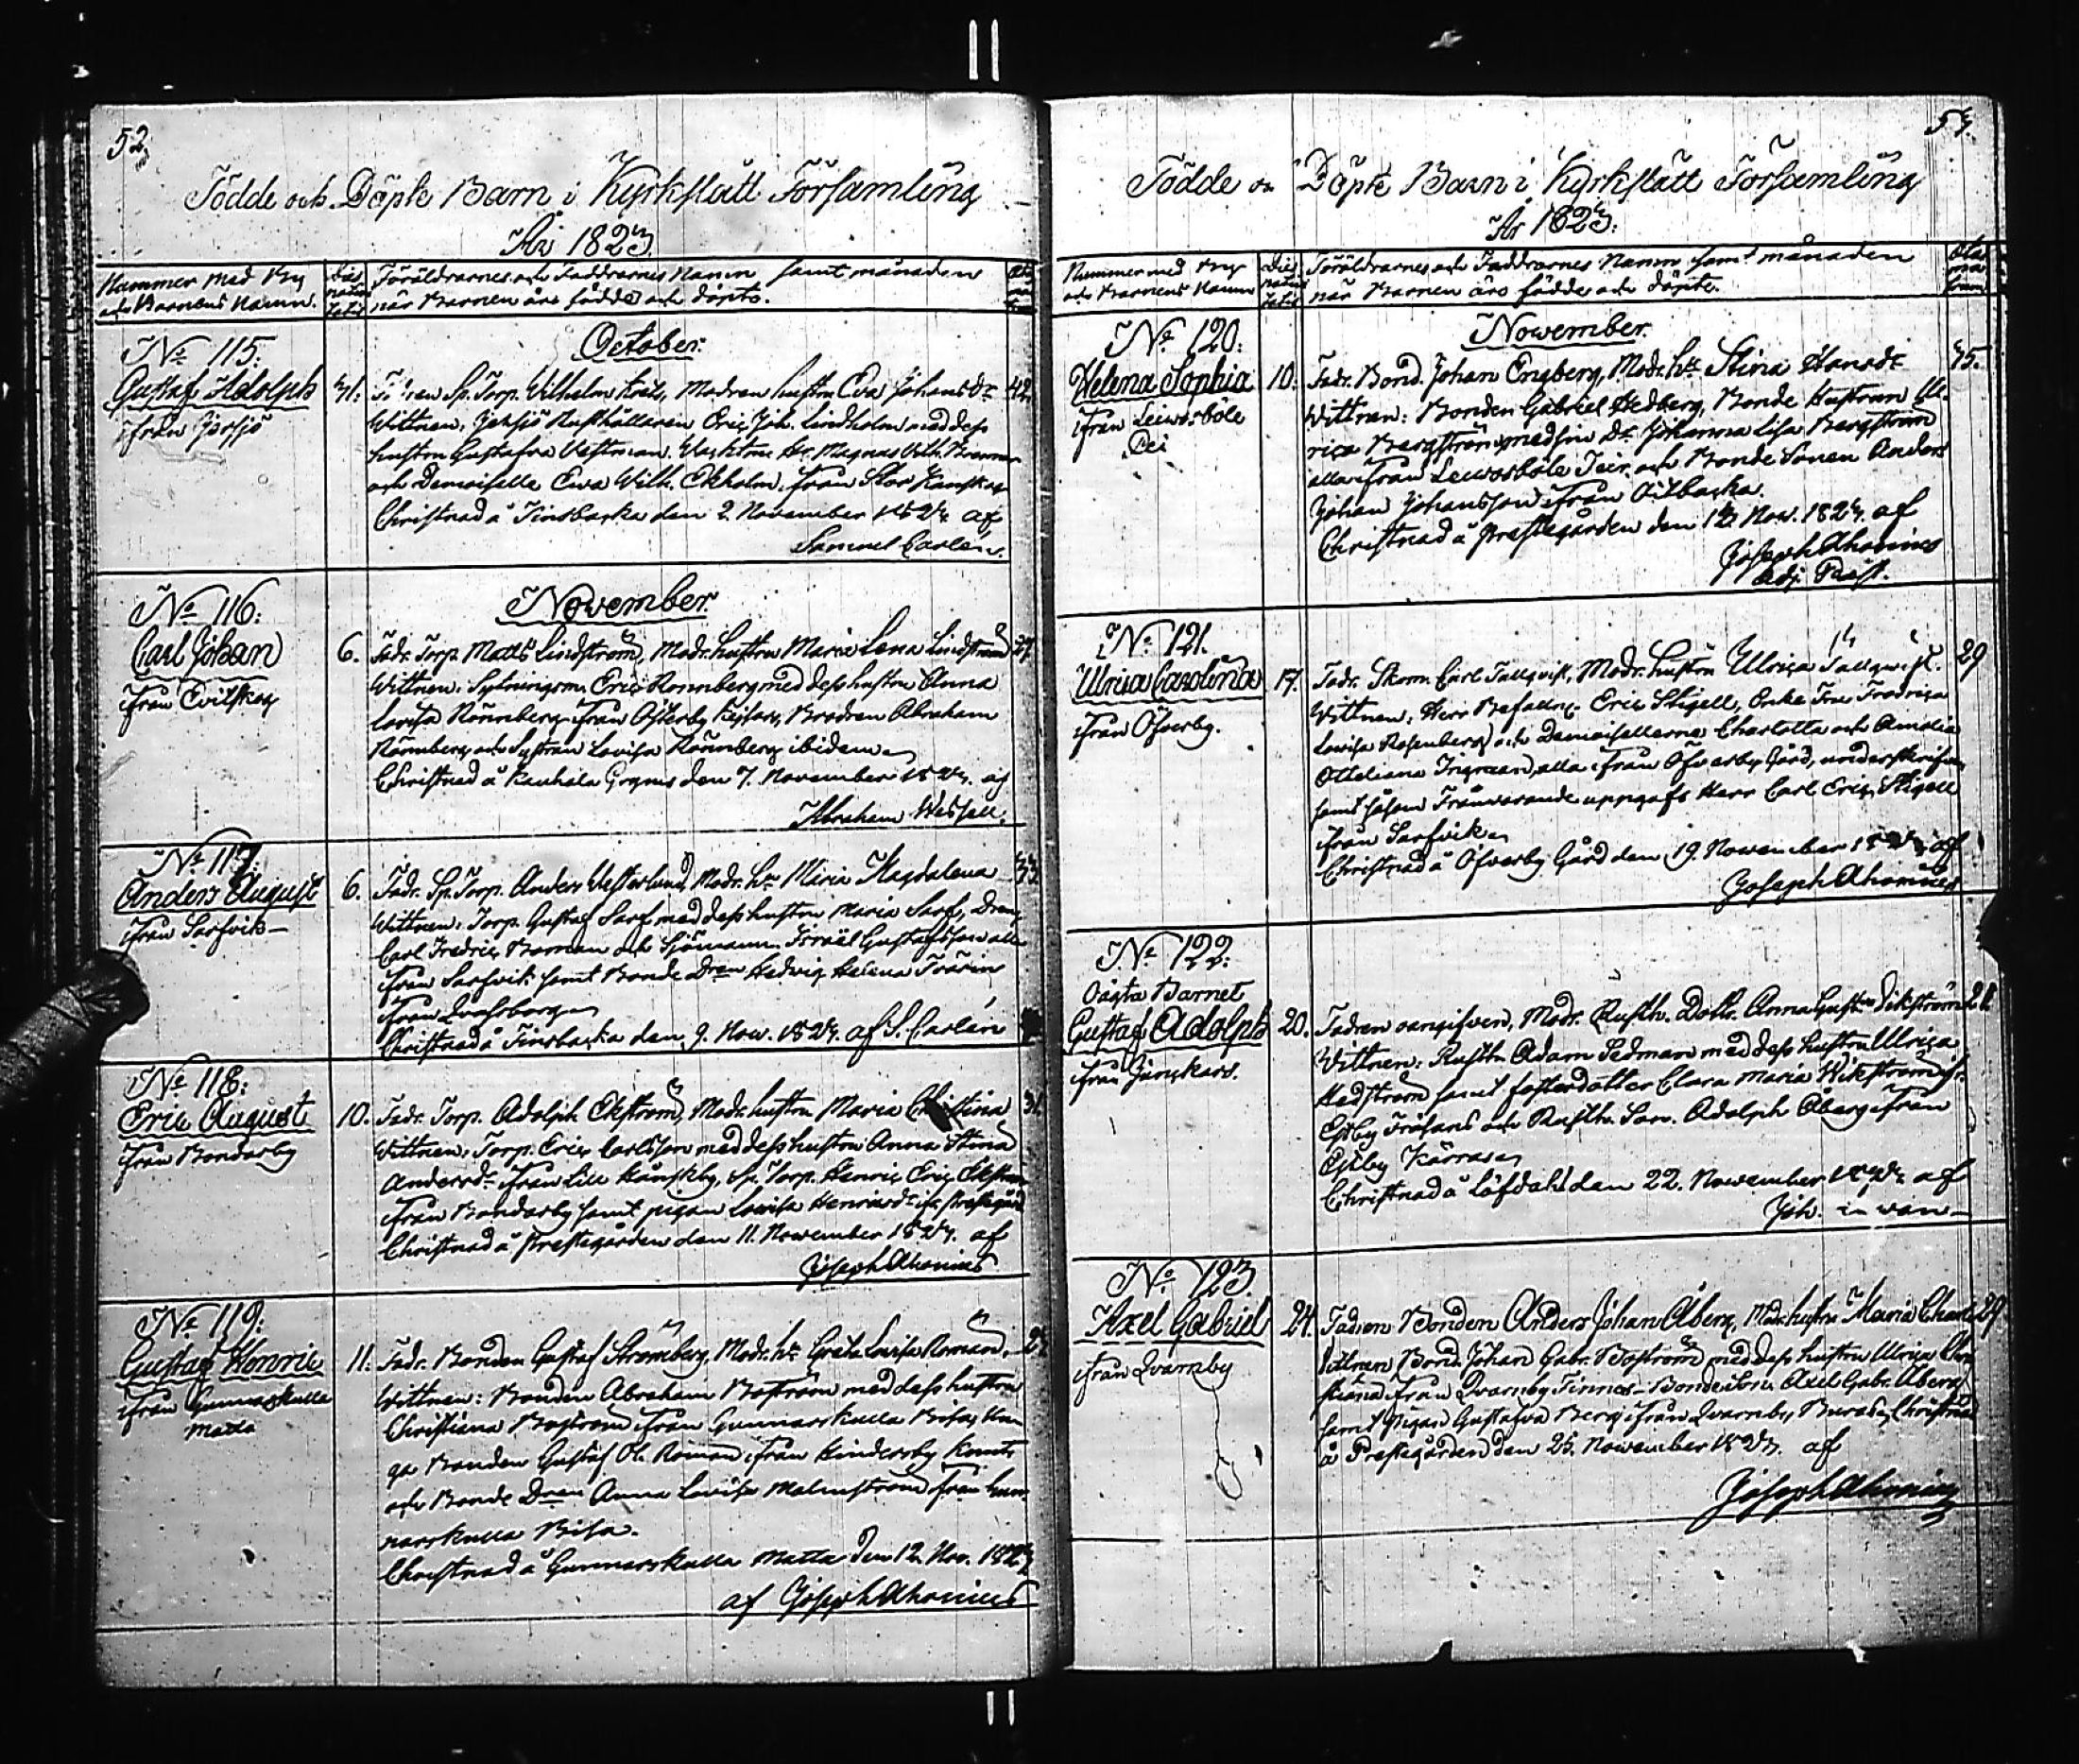 52.
Födde och Döpte Barn i Kyrkslätt Församling
År 1823.
Nummer med By
och Barnens Namn.
Föräldrarnes och Faddrarnes Namn samt månaden
när Barnen äro födde och döpte.
October.
No 115.
Gustaf Adolph
ifrån Jorsjö
31.
Fadren Sp. Torp. Wilhelm, Modren hustru Eva Johansdr
42.
Wittnen: Rusthållaren Eric Joh. Lindholm med dess
hustru Gustafva Westman, Magnus Wilh.
och Demoiselle Ewa Wilh. Ekholm, från Stor Kanskog
Christnad å Finsbacka den 2. November 1823 af
Samuel Carlén.
November
No 116.
Carl Johan
ifrån Evitskog
6.
Fadr. Torp. Matts Lindström, Modr. hustru Maria Lena Lindström
27
Wittnen: Sytningsm. Eric Rönnberg med dess hustru Anna
Lovisa Rönnberg ifrån Österby, Brodren Abraham
Rönnberg och Systran Lovisa Rönnberg ibidem
Christnad å Kauhala den 7. November 1823. af
Abraham
No 117.
Anders August
ifrån Sarfvik
6.
Fadr. Sp. Torp. Anders Westerlund, Modr. hu Maria Magdalena
33.
Wittnen: Torp. Gustaf Sarf med dess hustru Maria Sarf, Dreng
Carl Fredric Boman och Sjömann. Israël Gustafsson alla
ifrån Sarfvik samt Bonde Dren Hedvig Helena
ifrån
Christnad å Finsbacka den 9. Nov. 1823. af S. Carlén
No 118.
Eric August
ifrån Bondarby
10.
Fadr. Torp. Adolph Ekström, Modr. hustru Maria Christina
31.
Wittnen: Torp. Eric Carlsson med dess hustru Anna Stina
Andersdr ifrån Lill Kanskby, Sp. Torp. Henric Eric Ekström
ifrån Bondarby samt pigan Lovisa Henricsdr ifr. Prestegård
Christnad å Prestegården den 11. November 1823. af
Joseph Ahonius
No 119.
Gustaf Henric
ifrån Gunnarskulla
Matta
11.
Fadr. Bonden Gustaf Strömberg, Modr. hu Greta Lovisa Roman.
Wittnen: Bonden Abraham Boström med dess hustru
Christiana Boström ifrån Gunnarskulla Bisa, Un-
ga Bonden Gustaf Ol. Roman ifrån Hindersby
och Bonde Dren Anna Lovisa Malmström från Gun-
narskulla Bisa.
Christnad å Gunnarskulla Matta den 12. Nov. 1823
af Joseph Ahonius
53.
Födde och Döpte Barn i Kyrkslätt Församling
År 1823.
Nummer med By
och Barnens Namn
Föräldrarnes och Faddrarnes Namn samt månaden
när Barnen äro födde och döpte.
November.
No 120.
Helena Sophia
ifrån Leivosböle
10.
Fadr. Bond. Johan Engberg, Modr. hu Stina Hansdr
35.
Wittnen: Bonden Gabriel Hedberg, Bonde Hustrun Ul-
rica Bergström med sin Dr Johanna Lisa Bergström
alla ifrån Leivosböle och Bonde Sonen Anders
Johan Johansson ifrån Oitbacka.
Christnad å Prestegården den 12 Nov. 1823. af
Joseph Ahonius
Adj. Past.
No 121.
Ulrica Carolina
ifrån Öfverby.
17.
Fadr. Skom. Carl Tallqvist, Modr. hustru Ulrica Tallqvist.
29
Wittnen: Herr Befalln. Eric Stigell, Enke Fru Fredrica
Lovisa Rosenberg och Demoisellerne Charlotta och Amelia
Ottiliana Ingman, alla ifrån Öfverby Gård,
samt såsom Frånvarande uppgafs Herr Carl Eric Stigell
ifrån Sarfvik
Christnad å Öfverby Gård den 19. November 1823. af
Joseph Ahonius
No 122.
Oägta Barnet
Gustaf Adolph
ifrån
20.
Fadren oangifven, Modr. Rusth. Dottr. Anna Gust. Wikström
21.
Wittnen: Rusth. Adam Sedman med dess hustru Ulrica
Hedström samt fosterdotter Clara Maria Wikström ifr.
Estby Frösans och Rusth. Son. Adolph Åberg ifrån
Estby Kärra
Christnad å Löfdahl den 22. November 1823 af
Joh.
No 123.
Axel Gabriel
ifrån Qvarnby
24.
Fadren Bonden Anders Johan Åberg, Modr. hustru Maria Charl.
29
Wittnen Bond. Johan Gabr. Boström med dess hustru Ulrica Chri-
stiana ifrån Qvarnby Finnes, Bonde Son. Axel Gabr. Åberg
samt Pigan Gustafva Berg ifrån Qvarnby, Christnad
å Prestegården den 25. November 1823. af
Joseph Ahonius